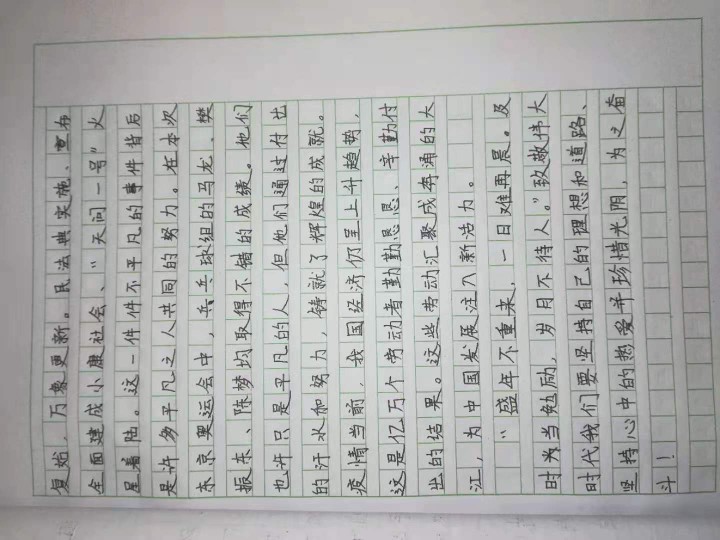 复始，万象更新。民法典实施、宣布
全面建成小康社会、“天问一号”火
星着陆。这一件件不平凡的事件背后
是许多平凡之人共同的努力。在本次
东京奥运会中，乒乓球组的马龙、樊
振东、陈梦均取得不错的成绩。他们
也许只是平凡的人，但他们通过付出
的汗水和努力，铸就了辉煌的成就。
疫情当前，我国经济仍呈上升趋势，
这是亿万个劳动者勤勤恳恳、辛勤付
出的结果。这些劳动汇聚成奔涌的大
江，为中国发展注入新活力。
“盛年不重来，一日难再晨。及
时当勉励，岁月不待人。”致敬伟大
时代我们要坚持自己的理想和道路、
坚持心中的热爱并珍惜光阴，为之奋
斗！